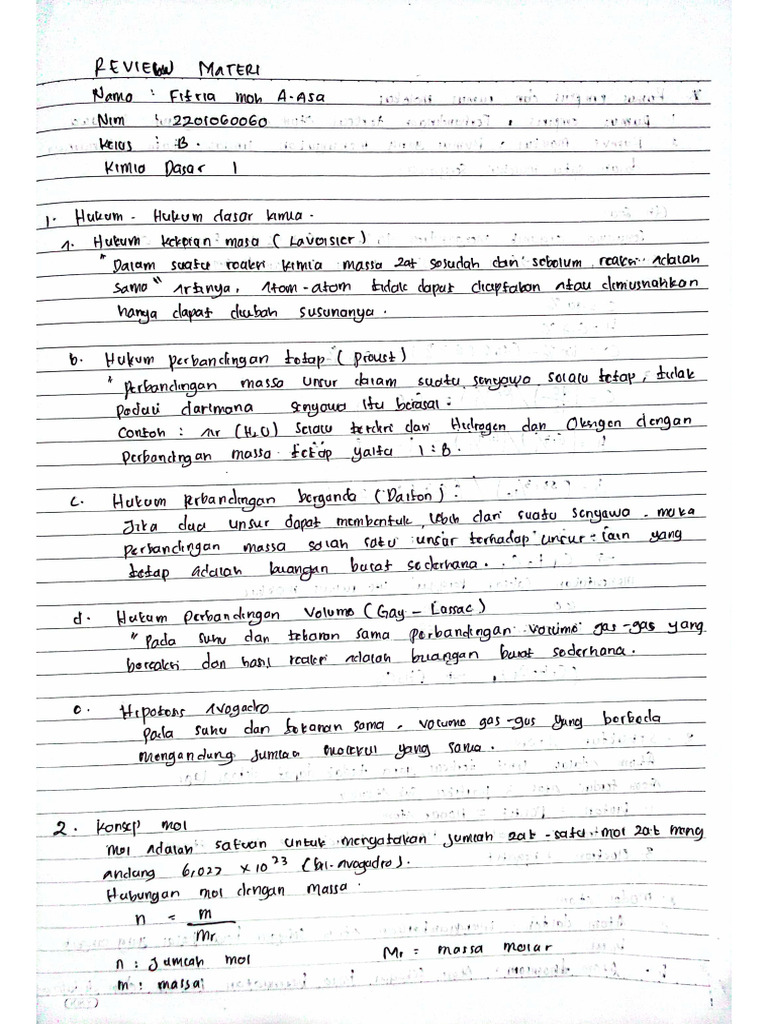 REVIEW MATERI
Nama : Fitria moh A-Asa
Nim : 2201060060
Kelas : B.
Kimia Dasar 1
1. Hukum - Hukum dasar kimia.
1. Hukum kekelan masa (Lavoisier)
" Dalam suatu reaksi kimia massa zat sosudah dan sebolum reaksi Adalah
samo " Artinya, Atom-atom tidak dapat diciptakan atau dimusnahkan
hanya dapat diubah susunanya.
b. Hukum perbandingan totap (Proust)
" perbandingan massa unsur dalam suatu senyawa selalu tetap, tidak
peduli darimana senyawa itu berasal.
Contoh : Air (H2O) Selalu terdiri dari Hidrogen dan Oksigen dengan
perbandingan massa tetap yaitu 1:8.
c. Hukum perbandingan berganda (Dalton) :
Jika dua unsur dapat membentuk lebih dari suatu senyawa, maka
perbandingan massa salah satu unsur terhadap unsur-lain yang
tetap adalah buangan bulat sederhana.
d. Hukum Perbandingan Volume (Gay - Lassac)
" Pada suhu dan tekanan sama perbandingan volume gas-gas yang
bereaksi dan hasil reaksi Adalah buangan bulat sederhana.
e. Hipotesis Avogadro
Pada suhu dan tekanan sama, volume gas-gas yang berbeda
mengandung jumlah molekul yang sama.
2. Konsep mol
mol Adalah satuan untuk menyatakan jumlah zat - satu mol zat meng
andung 6,022 x 10^23 (bil. Avogadro).
Hubungan mol dengan massa.
n = m
Mr
n : jumlah mol Mr = massa molar
m : massa